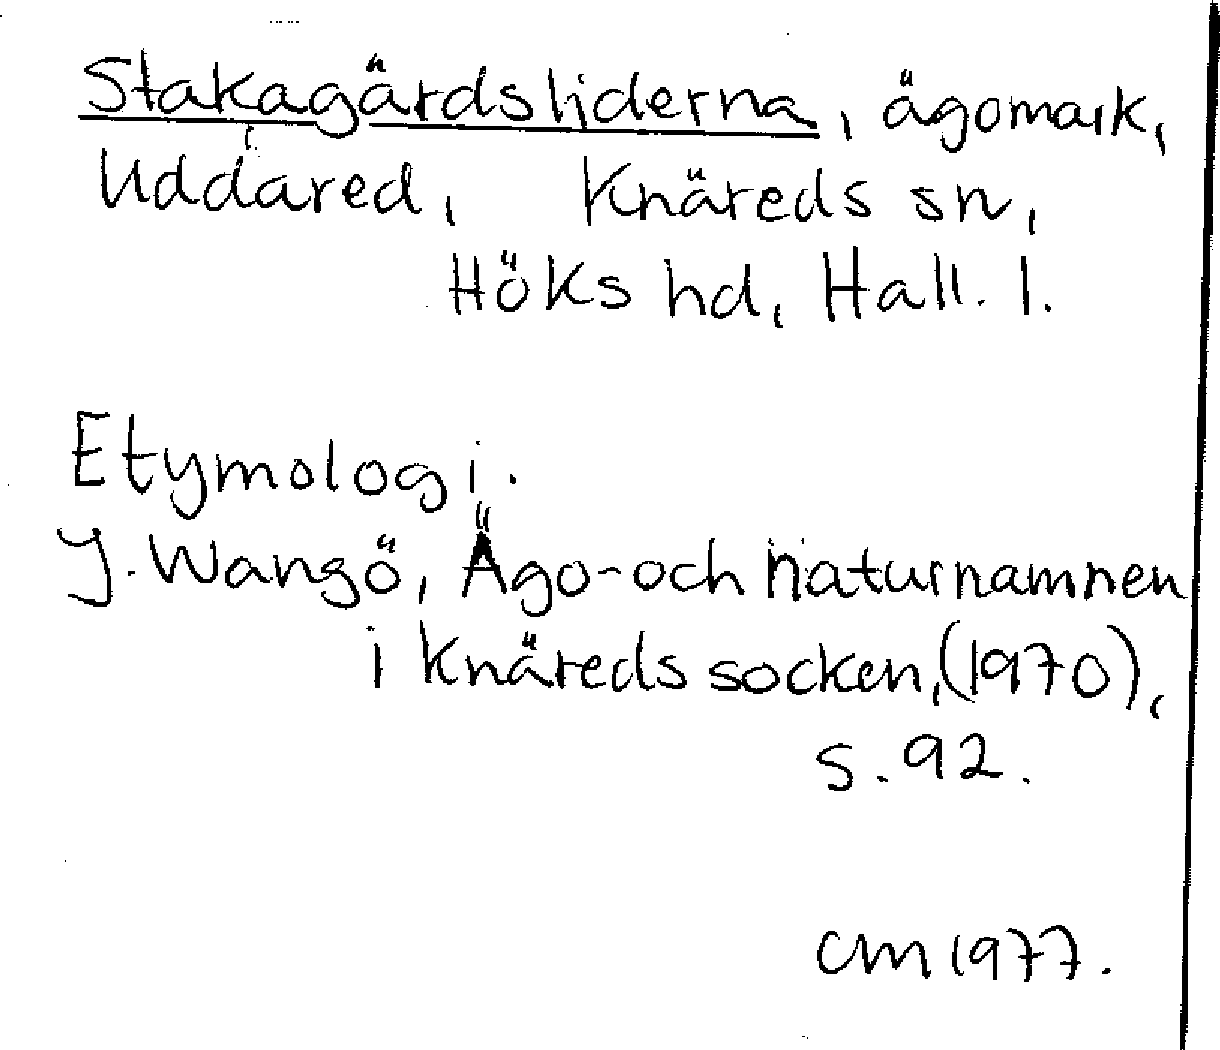 Stakagärdsliderna, ägomark,
Uddared, Knäreds sn,
Höks hd, Hall. l.
Etymologi.
J. Wangö, Ägo- och naturnamnen
i Knäreds socken, (1970),
s. 92.
CM 1977.